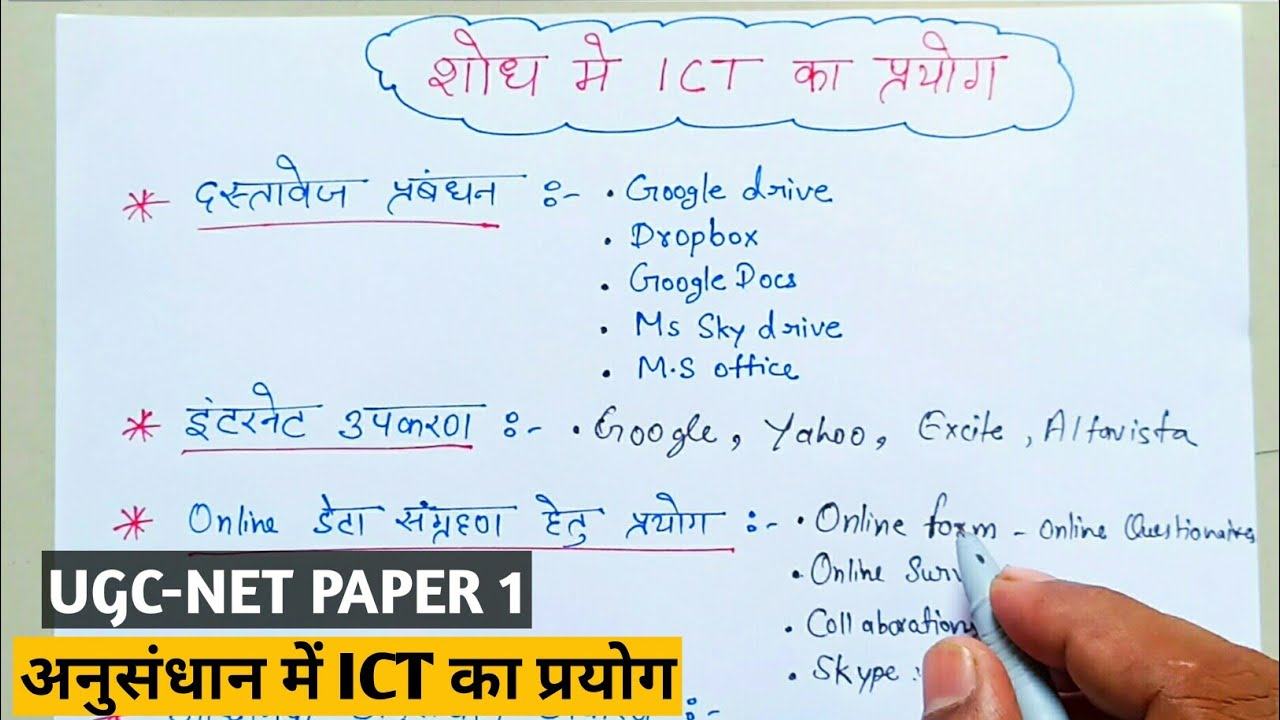 शोध मे ICT का प्रयोग
* दस्तावेज प्रबंधन :- • Google drive
• Dropbox
• Google Docs
• Ms Sky drive
• M.S office
* इंटरनेट उपकरण :- • Google, Yahoo, Excite, Altavista
* Online डेटा संग्रहण हेतु प्रयोग :- • Online form - Online Questionaires
• Online
• Collaborations
• Skype
UGC-NET PAPER 1
अनुसंधान में ICT का प्रयोग